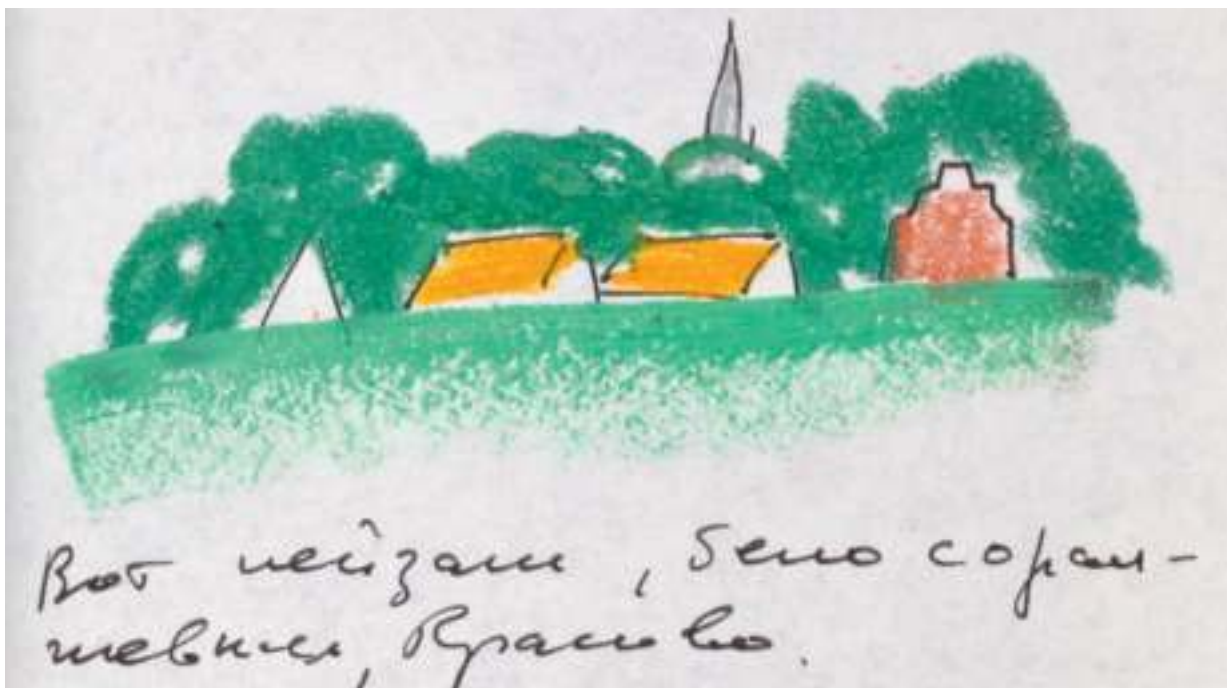 Вот пейзаж, бело с оран-
жевным, Красиво.